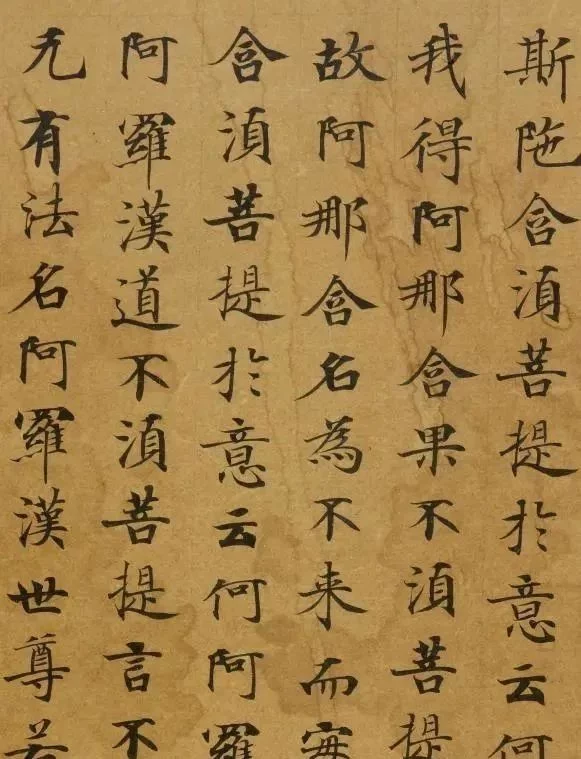 斯陁含湏菩提於意云何
我得阿那含果不湏菩提
故阿那含名為不来而
含湏菩提於意云何阿羅
阿羅漢道不湏菩提言不
无有法名阿羅漢世尊若